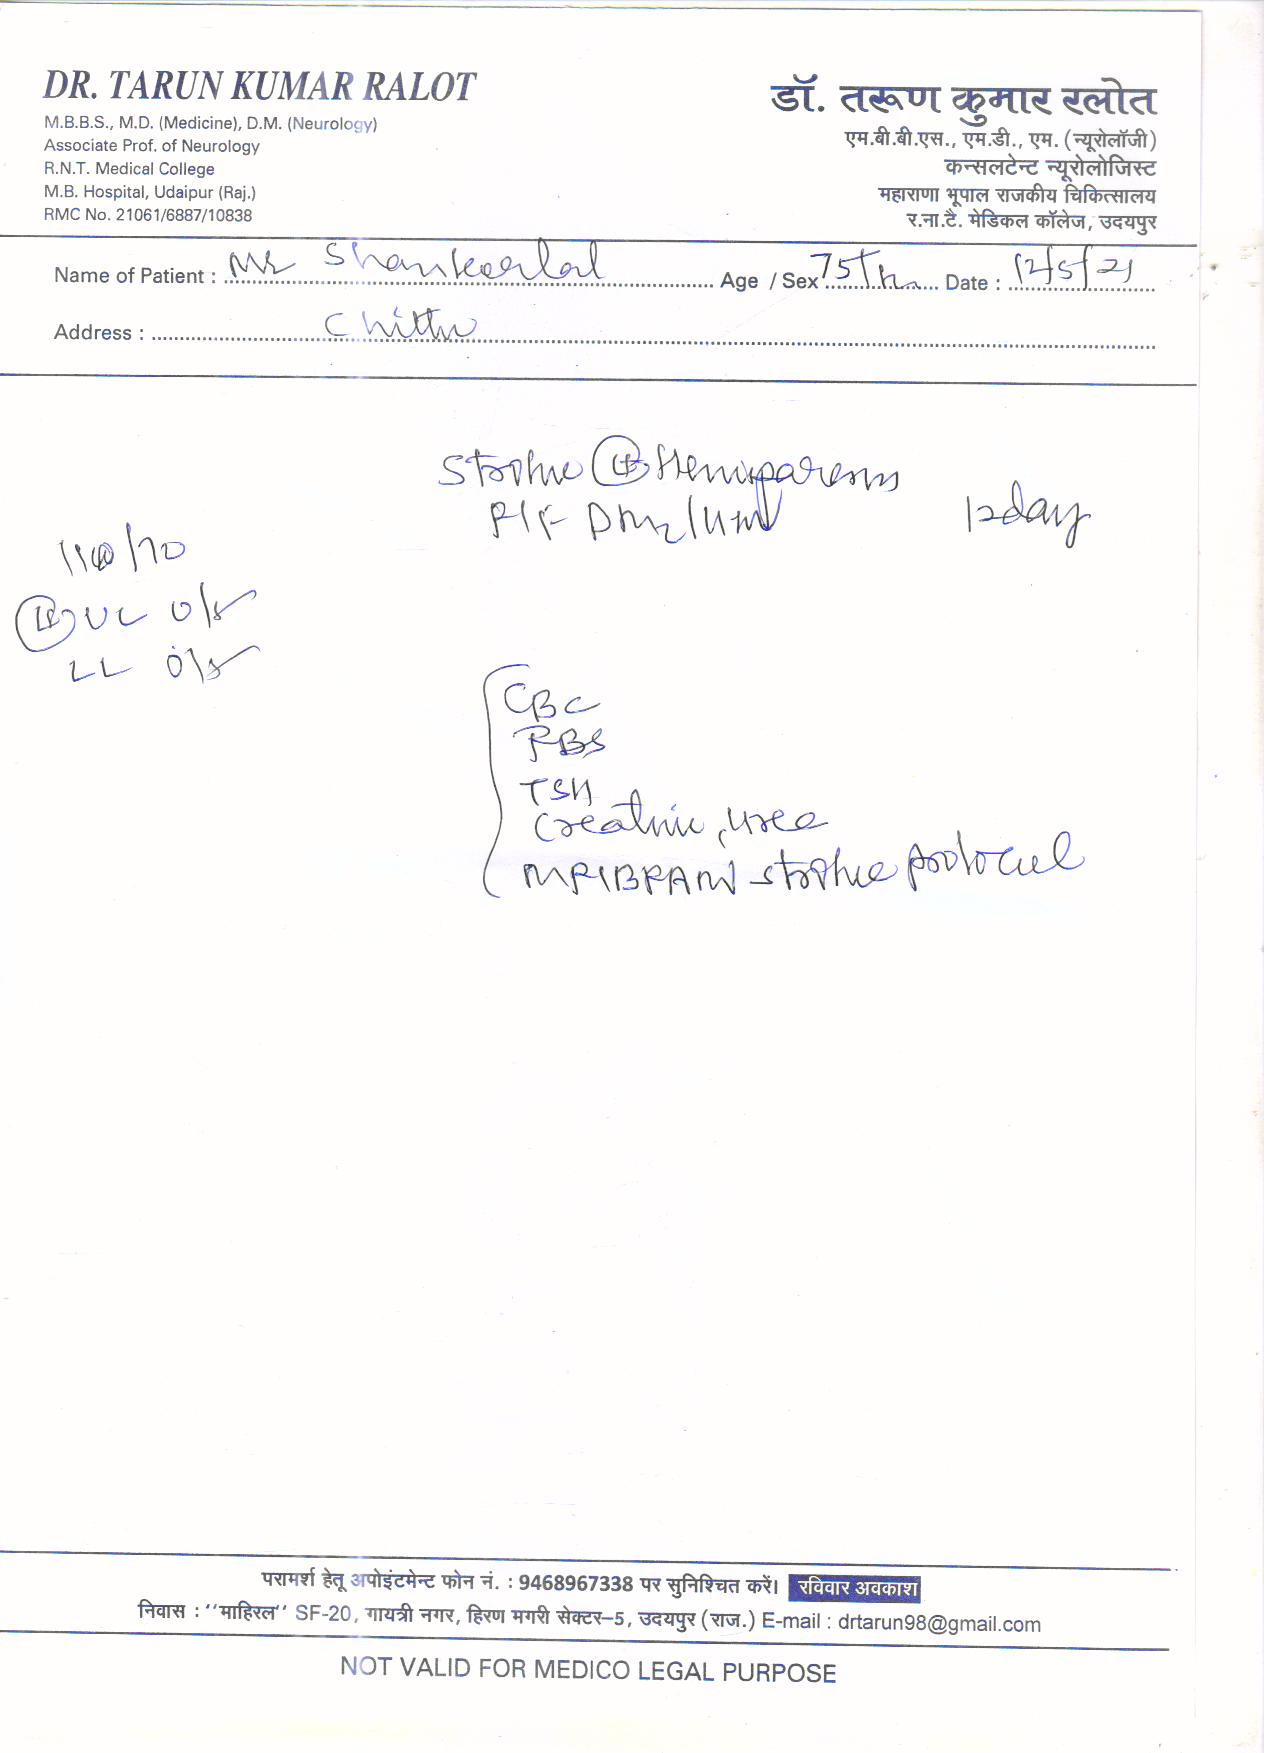 DR. TARUN KUMAR RALOT
M.B.B.S., M.D. (Medicine), D.M. (Neurology)
Associate Prof. of Neurology
R.N.T. Medical College
M.B. Hospital, Udaipur (Raj.)
RMC No. 21061/6887/10838
डॉ. तरूण कुमार रलोत
एम.बी.बी.एस., एम.डी., एम. (न्यूरोलॉजी)
कन्सलटेन्ट न्यूरोलोजिस्ट
महाराणा भूपाल राजकीय चिकित्सालय
र.ना.टै. मेडिकल कॉलेज, उदयपुर
Name of Patient : Mr Shankarlal Age / Sex 75 Date : 12/5/21
Address : Chitto
Stroke Lt Hemiparesis
12day
110/70
Lt UL 0/5
LL 0/5
CBC
RBS
TSH
Creatnic, urea
MRI BRAIN stroke protocol
परामर्श हेतू अपोइंटमेन्ट फोन नं. : 9468967338 पर सुनिश्चित करें। रविवार अवकाश
निवास : ‘‘माहिरल‘‘ SF-20, गायत्री नगर, हिरण मगरी सेक्टर–5, उदयपुर (राज.) E-mail : drtarun98@gmail.com
NOT VALID FOR MEDICO LEGAL PURPOSE